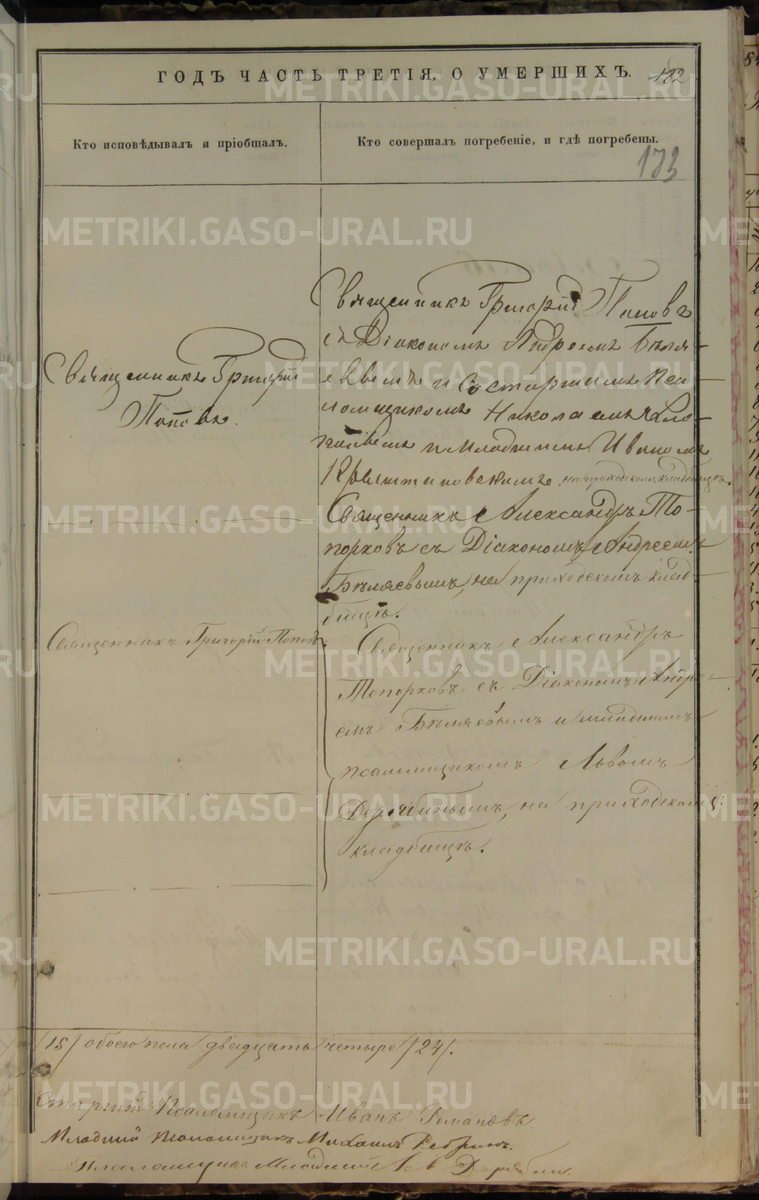 ГОДЪ ЧАСТЬ ТРЕТІЯ, О УМЕРШИХЪ.
182
Кто исповѣдывалъ и пріобщалъ.
Кто совершалъ погребеніе, и гдѣ погребены.
173
Священникъ Григорій
Поповъ.
Священникъ Григорій Поповъ
съ Діакономъ Андреемъ Бѣля-
евымъ и со старшимъ Пса-
ломщикомъ Николаемъ
и младшимъ Иваномъ
на приходскомъ кладбищѣ.
Священникъ Александръ То-
порковъ съ Діакономъ Андреемъ
Бѣляевымъ, на приходскомъ клад-
бищѣ.
Священникъ Григорій Поповъ.
Священникъ Александръ
Топорковъ съ Діакономъ Андре-
емъ Бѣляевымъ и младшимъ
псаломщикомъ Львомъ
на приходскомъ
кладбищѣ.
/15/ обоего пола двадцать четыре /24/.
Старшій Псаломщикъ Иванъ
Младшій Псаломщикъ Михаилъ
Псаломщикъ Младшій Левъ
METRIKI.GASO-URAL.RU